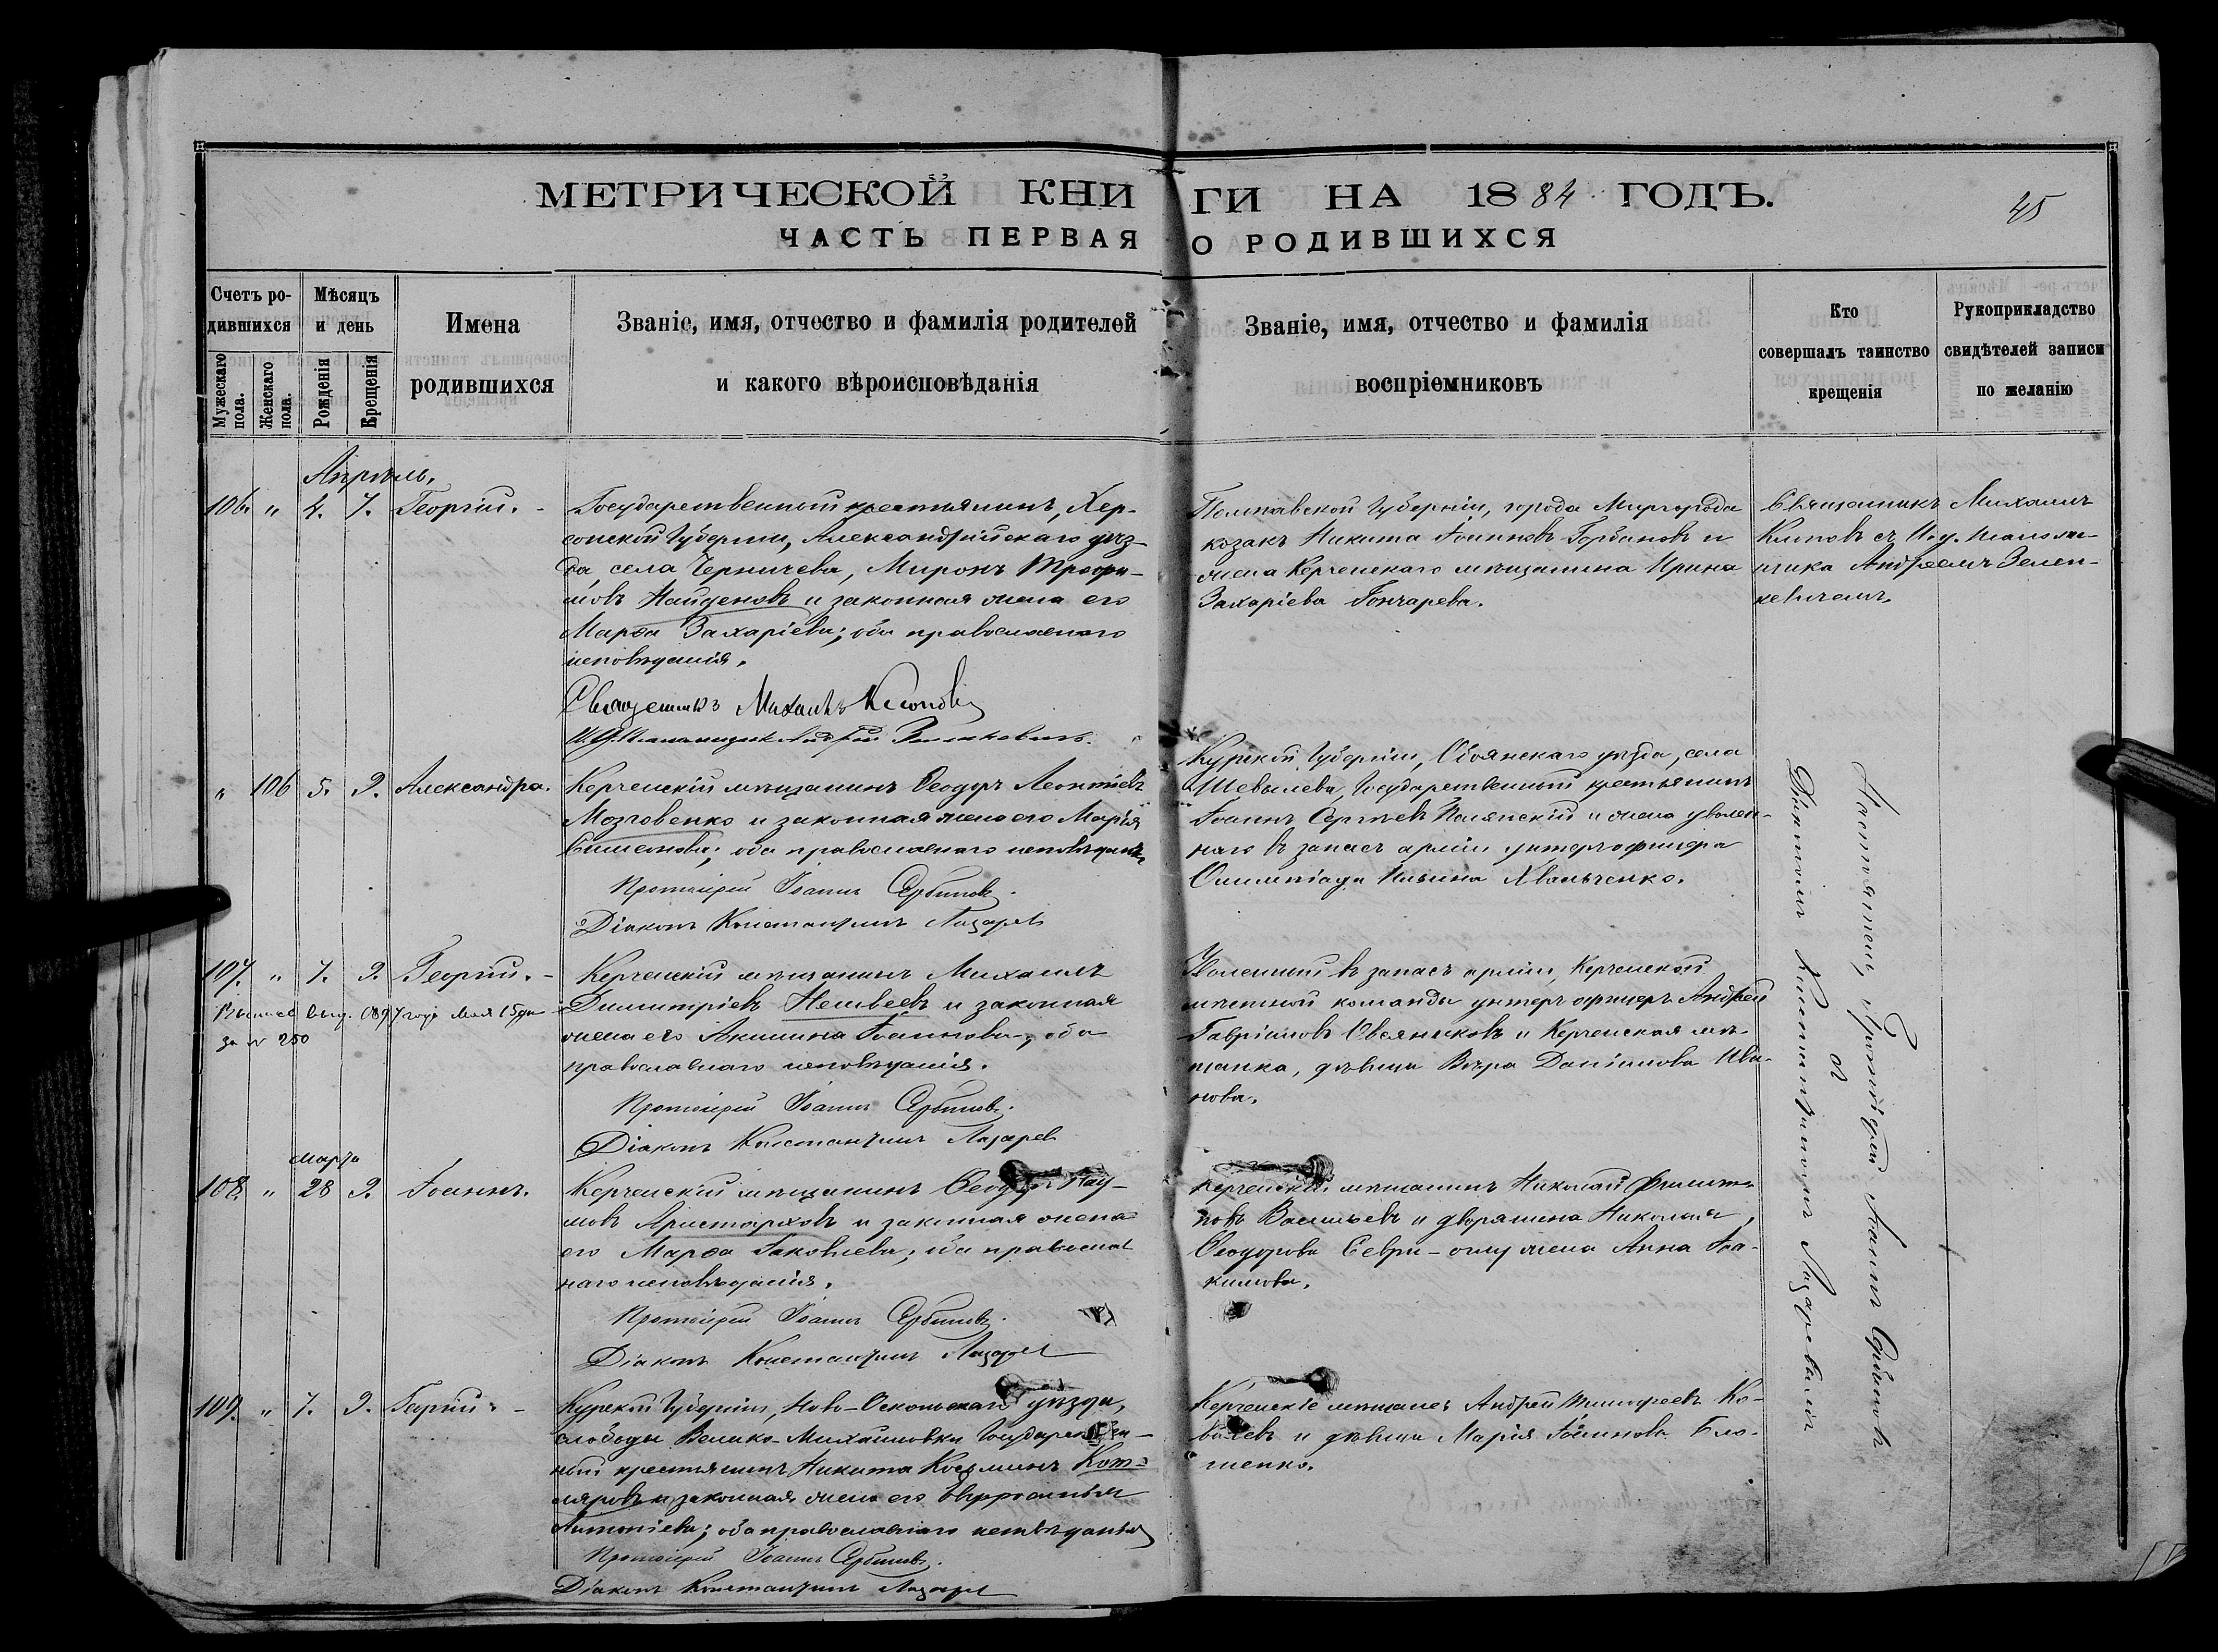 МЕТРИЧЕСКОЙ КНИГИ НА 1884 ГОДЪ.
45
ЧАСТЬ ПЕРВАЯ О РОДИВШИХСЯ
Счетъ родившихся
Мужескаго пола.
Женскаго пола.
Мѣсяцъ и день
Рожденія
Крещенія
Имена
родившихся
Званіе, имя, отчество и фамилія родителей
и какого вѣроисповѣданія
Званіе, имя, отчество и фамилія
воспріемниковъ
Кто
совершалъ таинство
крещенія
Рукоприкладство
свидѣтелей записи
по желанію
Апрѣль.
106. " 4. 7. Георгій.
Государственный крестьянинъ, Хер-
сонской Губерніи, Александрійскаго уѣз-
да, села Черничева, Миронъ Трофи-
мовъ Найденовъ и законная жена его
Марѳа Захаріева; оба православнаго
исповѣданія.
Священникъ Михаилъ
Полтавской Губерніи, города Миргорода
козакъ Никита Іоанновъ Горбановъ и
жена Керченскаго мѣщанина Ирина
Захаріева Гончарева.
Священникъ Михаилъ
съ И. д. псалом-
щика Андреемъ Зелен-
кевичемъ.
" 106 5. 9. Александра.
Керченскій мѣщанинъ Ѳеодоръ Леонтіевъ
Мозговенко и законная жена его Марія
Симеонова; оба православнаго исповѣданія
Протоіерей Іоаннъ Сербиновъ.
Діаконъ Константинъ Лазаревъ
Курской Губерніи, Обоянскаго уѣзда, села
Шевелева, Государственный крестьянинъ
Іоаннъ Сергѣевъ Полянскій и жена уволен-
наго въ запасъ арміи унтеръ офицера
Олимпіада Хвальченко.
107. " 7. 9. Георгій.
выд. 1897 года Мая 15 дня
за № 250
Керченскій мѣщанинъ Михаилъ
Димитріевъ Нешвеевъ и законная
жена его Акилина Іоаннова; оба
православнаго исповѣданія.
Протоіерей Іоаннъ Сербиновъ.
Діаконъ Константинъ Лазаревъ
Уволенный въ запасъ арміи, Керченской
мѣстной команды унтеръ офицеръ Андрей
Гавріиловъ Овсяниковъ и Керченская мѣ-
щанка, дѣвица Вѣра Даніилова Ива-
нова.
Марта
108. " 28 9. Іоаннъ.
Керченскій мѣщанинъ Ѳеодоръ Нау-
мовъ Аристарховъ и законная жена
его Марѳа Іаковлева; оба православ
наго исповѣданія.
Протоіерей Іоаннъ Сербиновъ.
Діаконъ Константинъ Лазаревъ
Керченскій мѣщанинъ Николай Филип-
повъ Васильевъ и дворянина Николая
Ѳеодорова Севри-оглу жена Анна Іоа-
кимова.
109. " 7. 9. Георгій.
Курской Губерніи, Ново-Оскольскаго уѣзда,
слободы Велико-Михайловки Государствен-
ный крестьянинъ Никита Косьминъ Кот-
ляровъ и законная жена его Евфросинія
Антоніева; оба православнаго исповѣданія
Протоіерей Іоаннъ Сербиновъ.
Діаконъ Константинъ Лазаревъ
Керченскіе мѣщане: Андрей Тимофеевъ Ко-
валевъ и дѣвица Марія Іоаннова Бло-
шенко.
Настоятель, Протоіерей Іоаннъ Сербиновъ
съ
Діакономъ Константиномъ Лазаревымъ